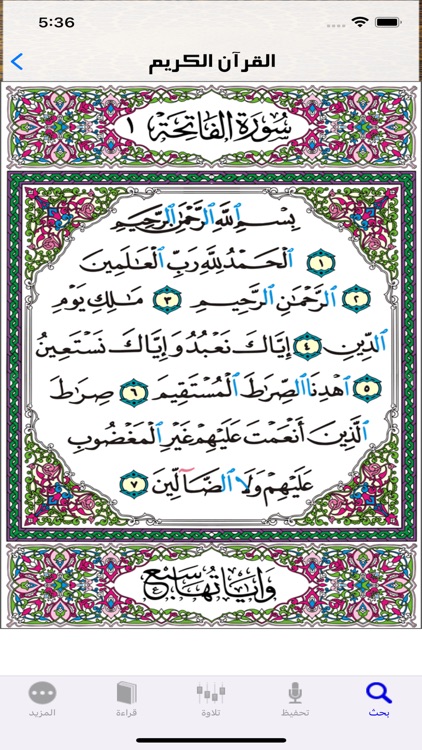 5:36
القرآن الكريم
سُورَةُ الْفَاتِحَةِ ١
بِسْمِ اللَّهِ الرَّحْمَٰنِ الرَّحِيمِ
١ الْحَمْدُ لِلَّهِ رَبِّ الْعَالَمِينَ
٢ الرَّحْمَٰنِ الرَّحِيمِ ٣ مَٰلِكِ يَوْمِ
الدِّينِ ٤ إِيَّاكَ نَعْبُدُ وَإِيَّاكَ نَسْتَعِينُ
٥ اهْدِنَا الصِّرَاطَ الْمُسْتَقِيمَ ٦ صِرَاطَ
الَّذِينَ أَنْعَمْتَ عَلَيْهِمْ غَيْرِ الْمَغْضُوبِ
عَلَيْهِمْ وَلَا الضَّآلِّينَ ٧
وَآيَاتُهَا سَبْعٌ
بحث
تحفيظ
تلاوة
قراءة
المزيد